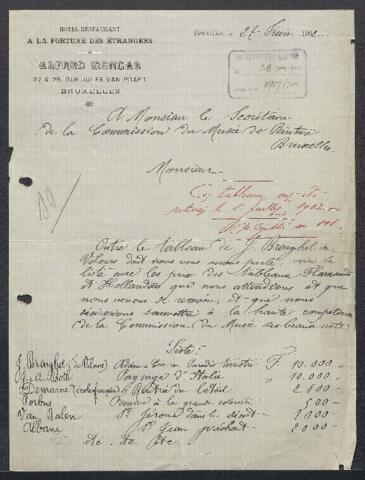 HOTEL-RESTAURANT
A LA FORTUNE DES ÉTRANGERS
ALFRED MENCAR
27 & 29, RUE JULES VAN PRAET
BRUXELLES
Bruxelles, le 27 Juin 1902
A Monsieur le Secrétaire
de la Commission du Musée de Peinture
Bruxelles
Monsieur
Ces tableaux ont été
retirés le 5 juillet 1902
Outre le tableau de J. Breughel de
Velours dont nous vous avons parlé, voici la
liste avec les prix des tableaux Flamands
et Hollandais que nous attendions et que
nous venons de recevoir et que nous
désirerions soumettre à la haute compétence
de la Commission du Musée des beaux-arts
Liste:
J. Breughel (de Velours) Adam & Eve au Paradis terrestre F. 10.000
J. & A. Both Paysage d'Italie " 10.000
Demarne (école française) Rentrée du bétail 2.500
Porbus Femme à la grande collerette 500
Van Balen St Jérôme dans le désert 2.000
Albane St Jean prêchant 2000
etc. etc. etc.